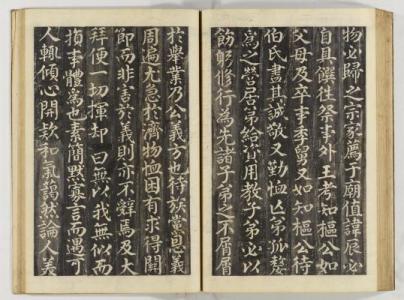 物必歸之宗家薦于廟值諱辰必
自具饌往祭事外王考如樞公如
父母及卒事季舅又如知樞公待
伯氏盡其誠敬又勤恤亡弟孤嫠
爲之營居第給資用教子弟必以
飭躬修行為先諸子弟之不屑屑
於舉業乃公義方也待族黨恩義
周遍尤急於濟物恤困有求得關
節而非害於義則亦不辭焉及大
拜便一切揮却曰無以我無似而
損事體爲也素簡默寡言而遇可
人輒傾心開款和氣藹然論人美